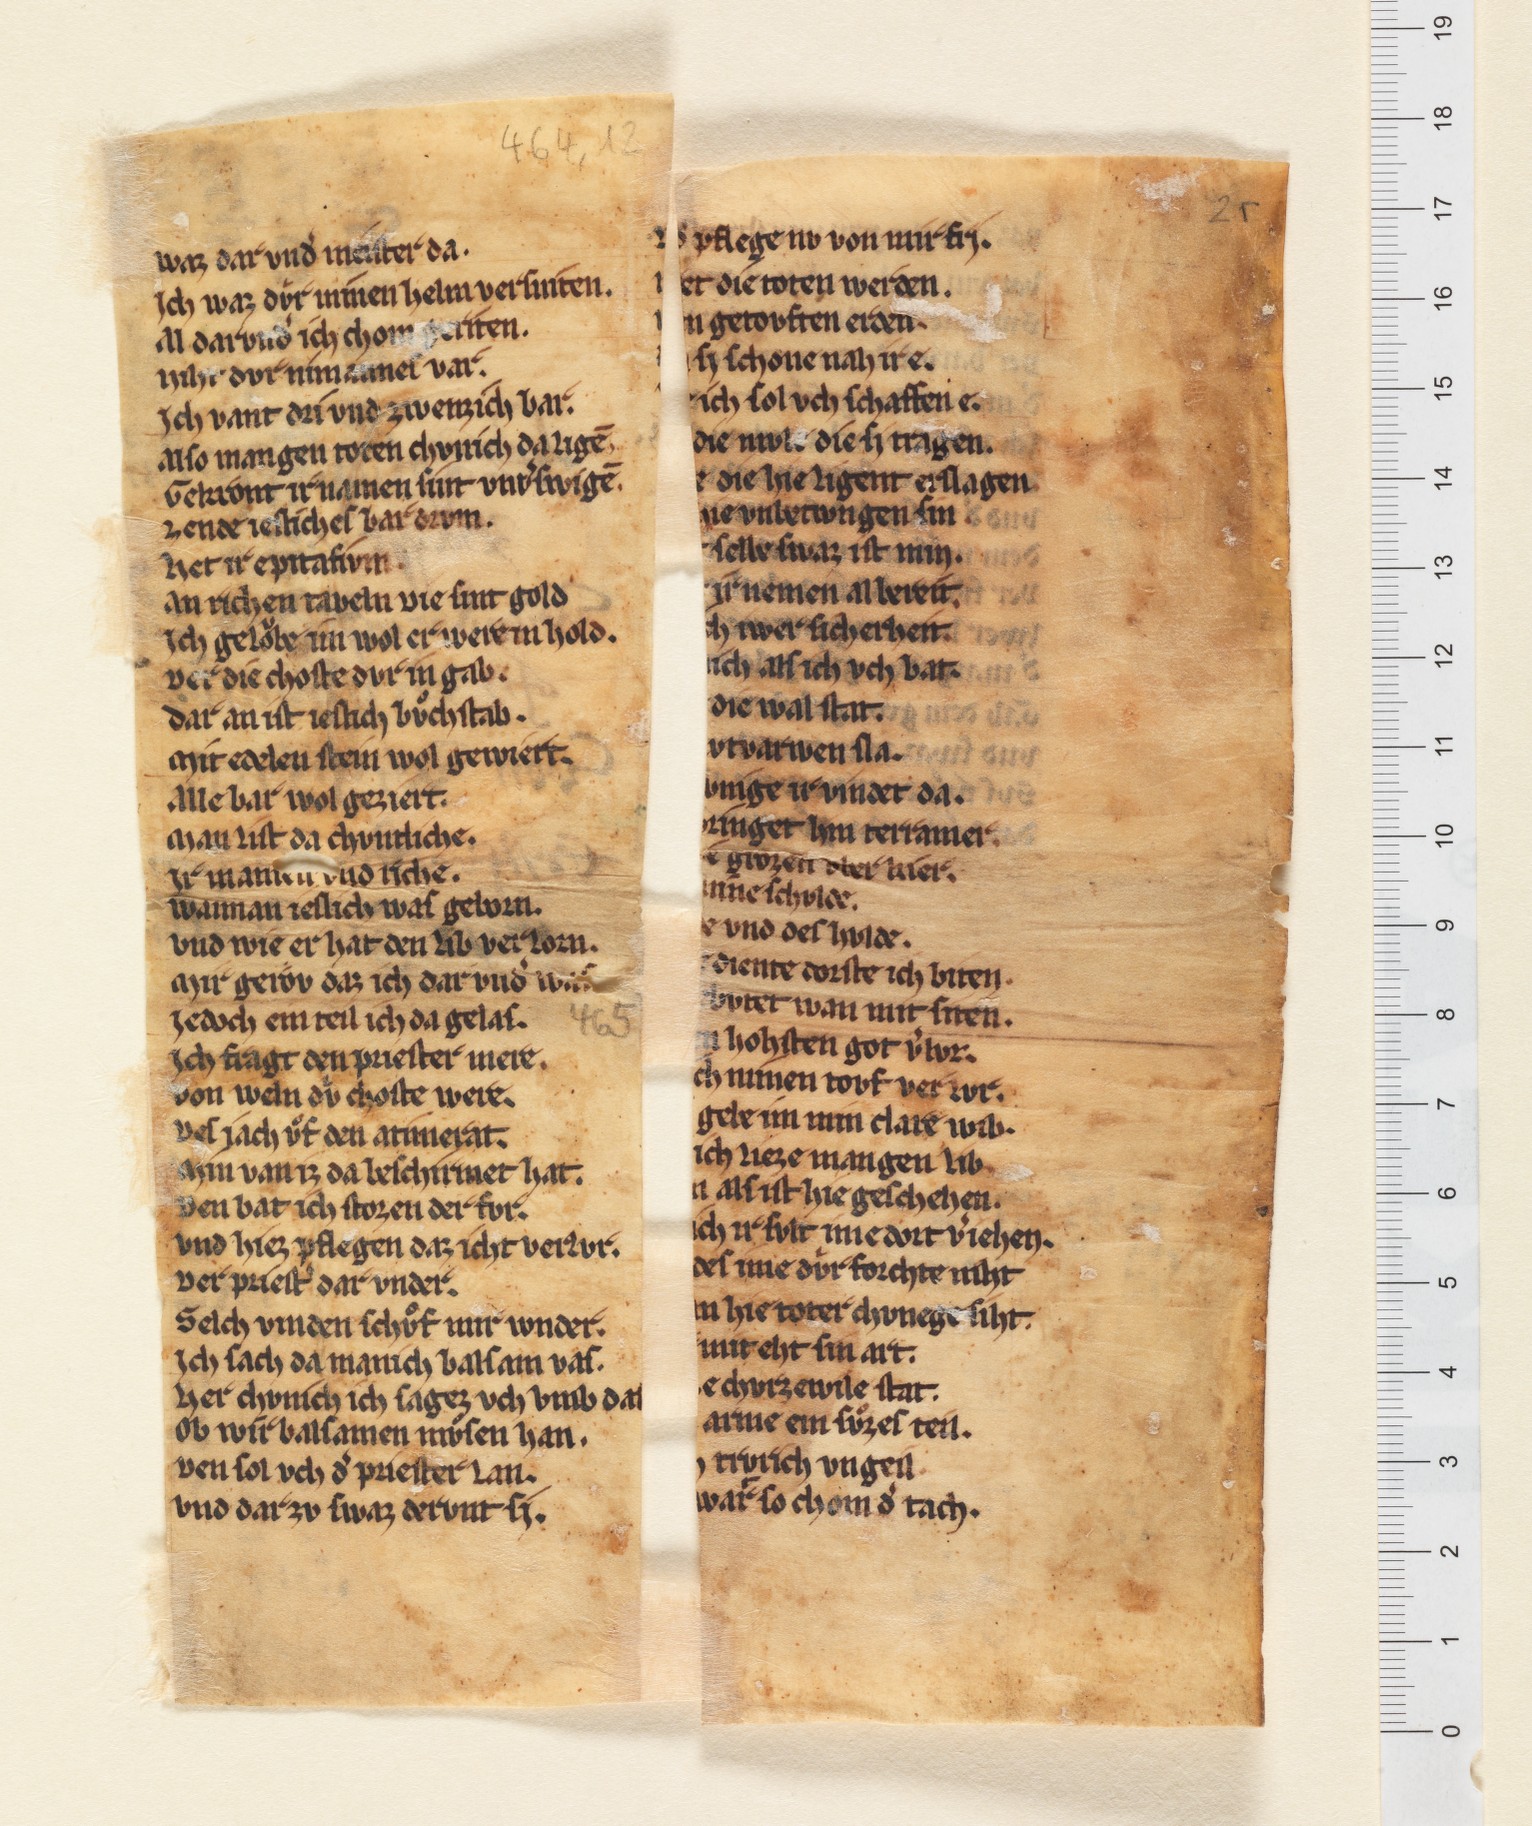 464,12
waz dar vnd᾽ meister da.
Ich waz dv̊r minen helm versniten.
Al dar vnd᾽ ich chom geriten.
niht dvr nimannes var.
Ich vant dri vnd zwenzich bar.
also mangen toten chvnich da ligē.
Gekront ir namen sint vnv᾽swigē.
zende iesliches bar drvm.
Het ir epitafivm.
an richen taveln die sint gold
Ich gelŏbe im wol er were in hold.
der die choste dvr in gab.
dar an ist ieslich bv̊chstab.
mit edelen stein wol gewiert.
Alle bar wol geziert.
man list da chvntliche.
Ir namen vnd riche.
wannan ieslich was geborn.
vnd wie er hat den lib verlorn.
mir gerŏv daz ich dar vnd᾽ was
Jedoch ein teil ich da gelas.
465
Ich fragt den priester mere.
von weln dv̊ choste were.
des jach v̊f den atmerat.
Min van iz da beschirmet hat.
den bat ich stozen der fvr.
vnd hiez pflegen daz icht verlvr.
der priest᾽ dar vnder.
Selch vinden schv̊f mir wnder.
Ich sach da manich balsam vas.
Her chvnich ich sagez vch vmb daz
Ob wir balsamen mv̊sen han.
den sol vch d᾽ priester lan.
vnd dar zv swaz dervnt si.
2r
pflege nv von mir fri.
die toten werden.
getovften erden.
si schone nah ir e.
ich sol vch schaffen e.
die mvle die si tragen.
die hie ligent erslagen
vnbetwngen sin
selbe swaz ist min.
ir nemen al bereit.
iwer sicherheit.
als ich vch bat.
die wal stat.
varwen sla.
ir vindet da.
hin terramer.
grozen vber mer.
schvlde.
vnd des hvlde.
diente dorste ich biten.
wan mit siten.
hohsten got v᾽lvr.
minen tovf verlvr.
gebe im min clare wib.
ich lieze mangen lib
als ist hie geschehen.
ir svlt mie dort v᾽iehen.
des mie dv̊r forchte niht
hie toter chvnege siht.
mit eht sin art.
chvrzewile stat.
arme ein sv̊zes teil.
trvrich vngeil
so chom d᾽ tach.